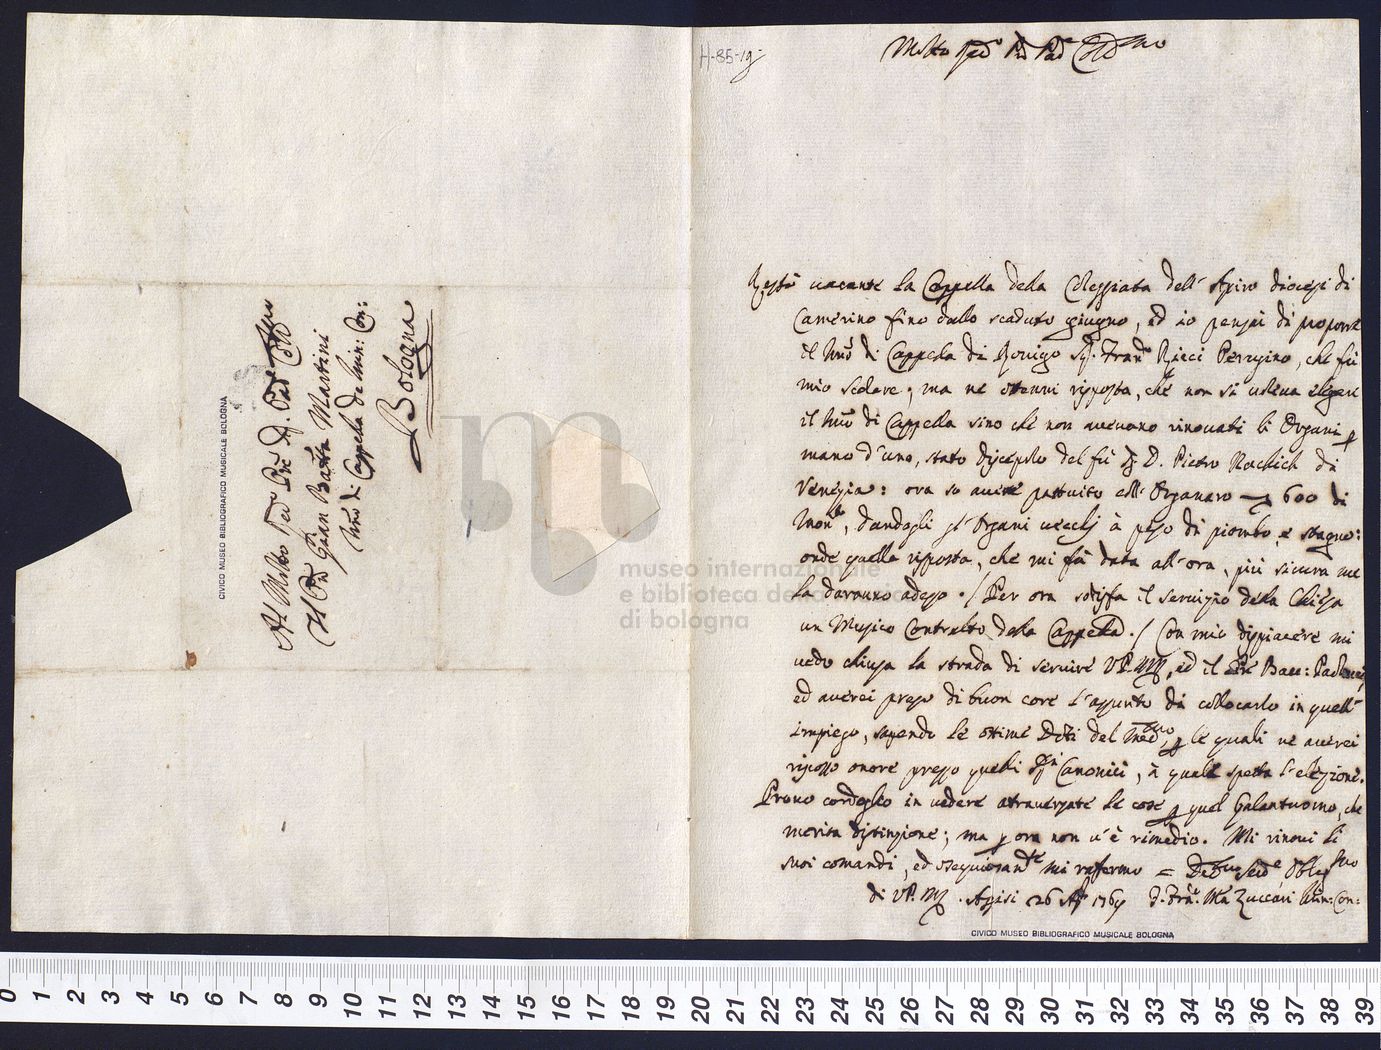 H-85-19
Molto Red.o P.re Pad.e
Restò vacante la Cappella della Colleggiata dell' Apiro diocesi di
Camerino fino dallo scaduto giugno, ed io pensai di proporre
il Mr̃o di Cappella di Rovigo Sig. Fran.co Ricci Perugino, che fù
mio scolare; ma ne ottenni risposta, che non si voleva elegere
il Mr̃o di Cappella sino che non avevano rinovati li Organi p
mano d'uno, stato Discepolo del fù D. Pietro Nachich di
Venezia: ora so avere pattuito coll' Organaro 600 di
Mon.ta, dandogli gl' Organi vecchj à peso di piombo, e stagno:
onde quella risposta, che mi fù data all' ora, più sicura me
la daranno adesso. / Per ora sodisfa il servizio della Chiesa
un Musico Contralto della Cappella. / Con mio dispiacere mi
vedo chiusa la strada di servire VP.M.R., ed il P̃re Bacc:
ed averei preso di buon core l'assunto di collocarlo in quell'
impiego, sapendo le ottime Doti del Med.mo, p le quali ne averei
riscosso onore presso quelli Canonici, à quali spetta l'elezione.
Provo cordoglio in vedere atraversate le cose p quel Galantuomo, che
merita distinzione; ma p ora non v'è rimedio. Mi rinovi li
suoi comandi, ed ossequiosam.te mi rafermo = Obl.mo
di VP.M.R. Assisi 26 1769 F. Fran. M.a Zuccari Min: Con:
Al Molto Red.o P̃re Pad.
Il P̃re Gian Batta Martini
Mr̃o di Cappella de Min: Con:
Bologna
CIVICO MUSEO BIBLIOGRAFICO MUSICALE BOLOGNA
museo internazionale
e biblioteca della musica
di bologna
CIVICO MUSEO BIBLIOGRAFICO MUSICALE BOLOGNA
0 1 2 3 4 5 6 7 8 9 10 11 12 13 14 15 16 17 18 19 20 21 22 23 24 25 26 27 28 29 30 31 32 33 34 35 36 37 38 39